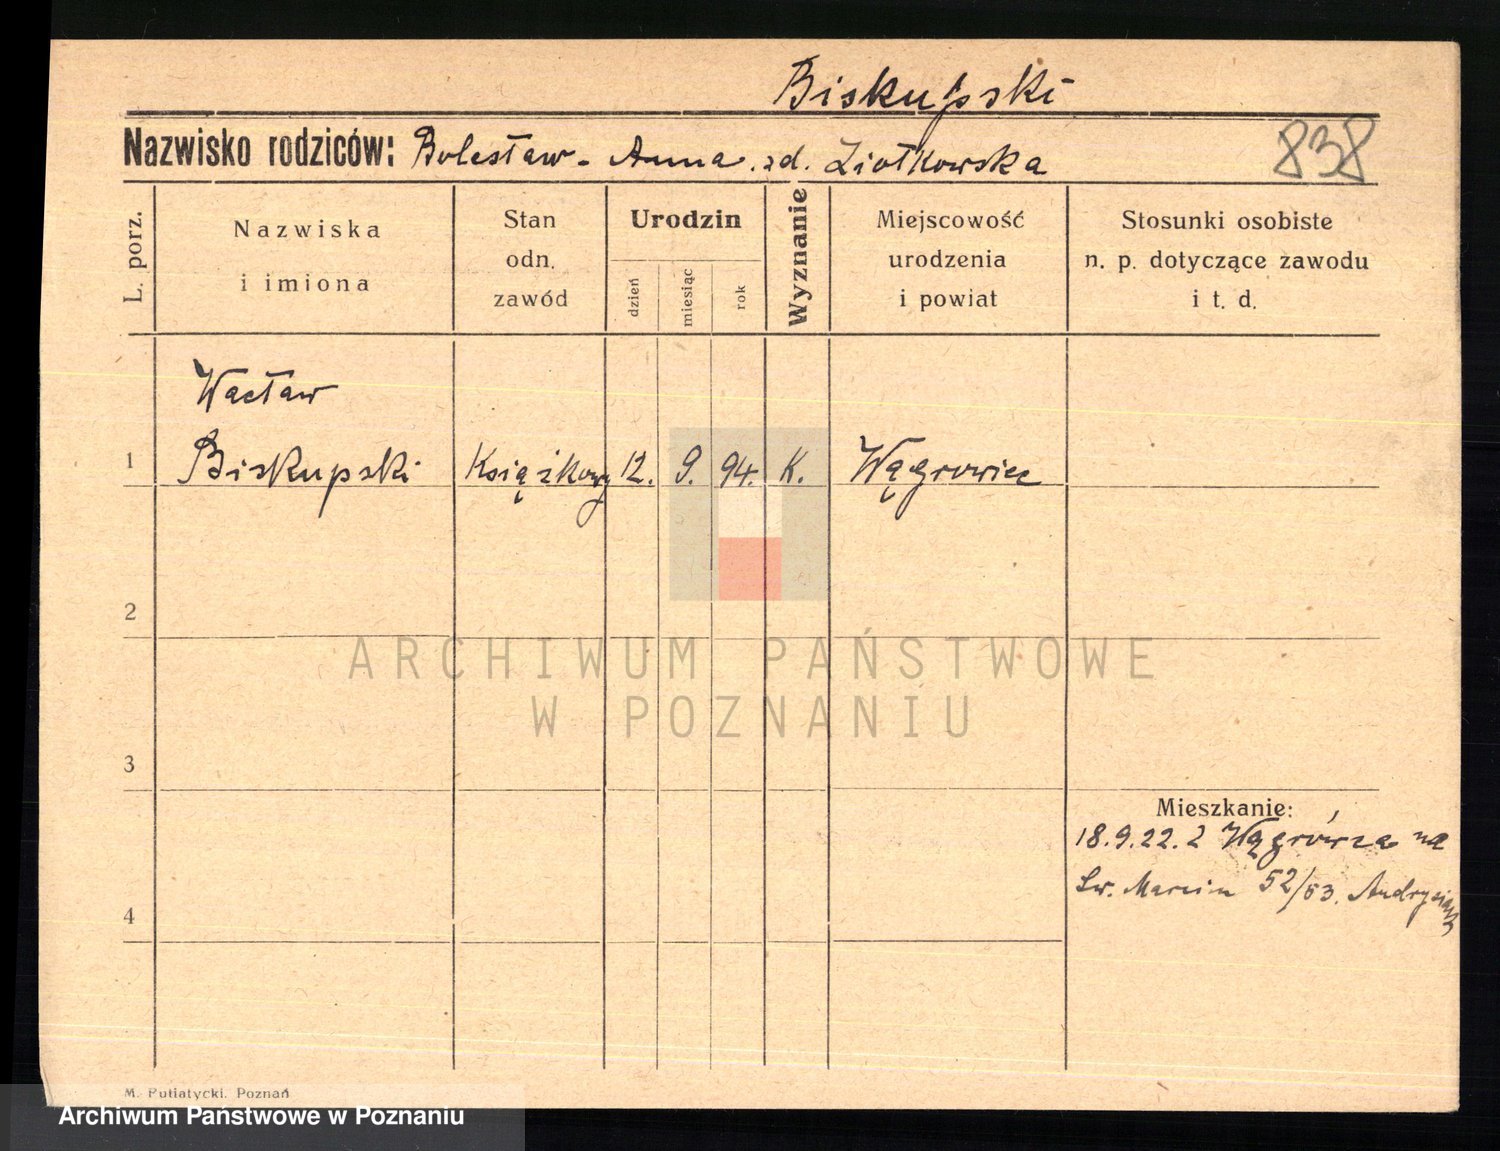 Biskupski
Nazwisko rodziców: Bolesław - Anna zd. Ziołkowska
838
L. porz.
Nazwiska
i imiona
Stan
odn.
zawód
Urodzin
dzień
miesiąc
rok
Wyznanie
Miejscowość
urodzenia
i powiat
Stosunki osobiste
n. p. dotyczące zawodu
i t. d.
Wacław
1 Biskupski Książkowy 12. 9. 94. K. Wągrowiec
2
ARCHIWUM PAŃSTWOWE
W POZNANIU
3
Mieszkanie:
18.9.22. z Wągrówca na
Św. Marcin 52/53.
4
M. Putiatycki. Poznań
Archiwum Państwowe w Poznaniu